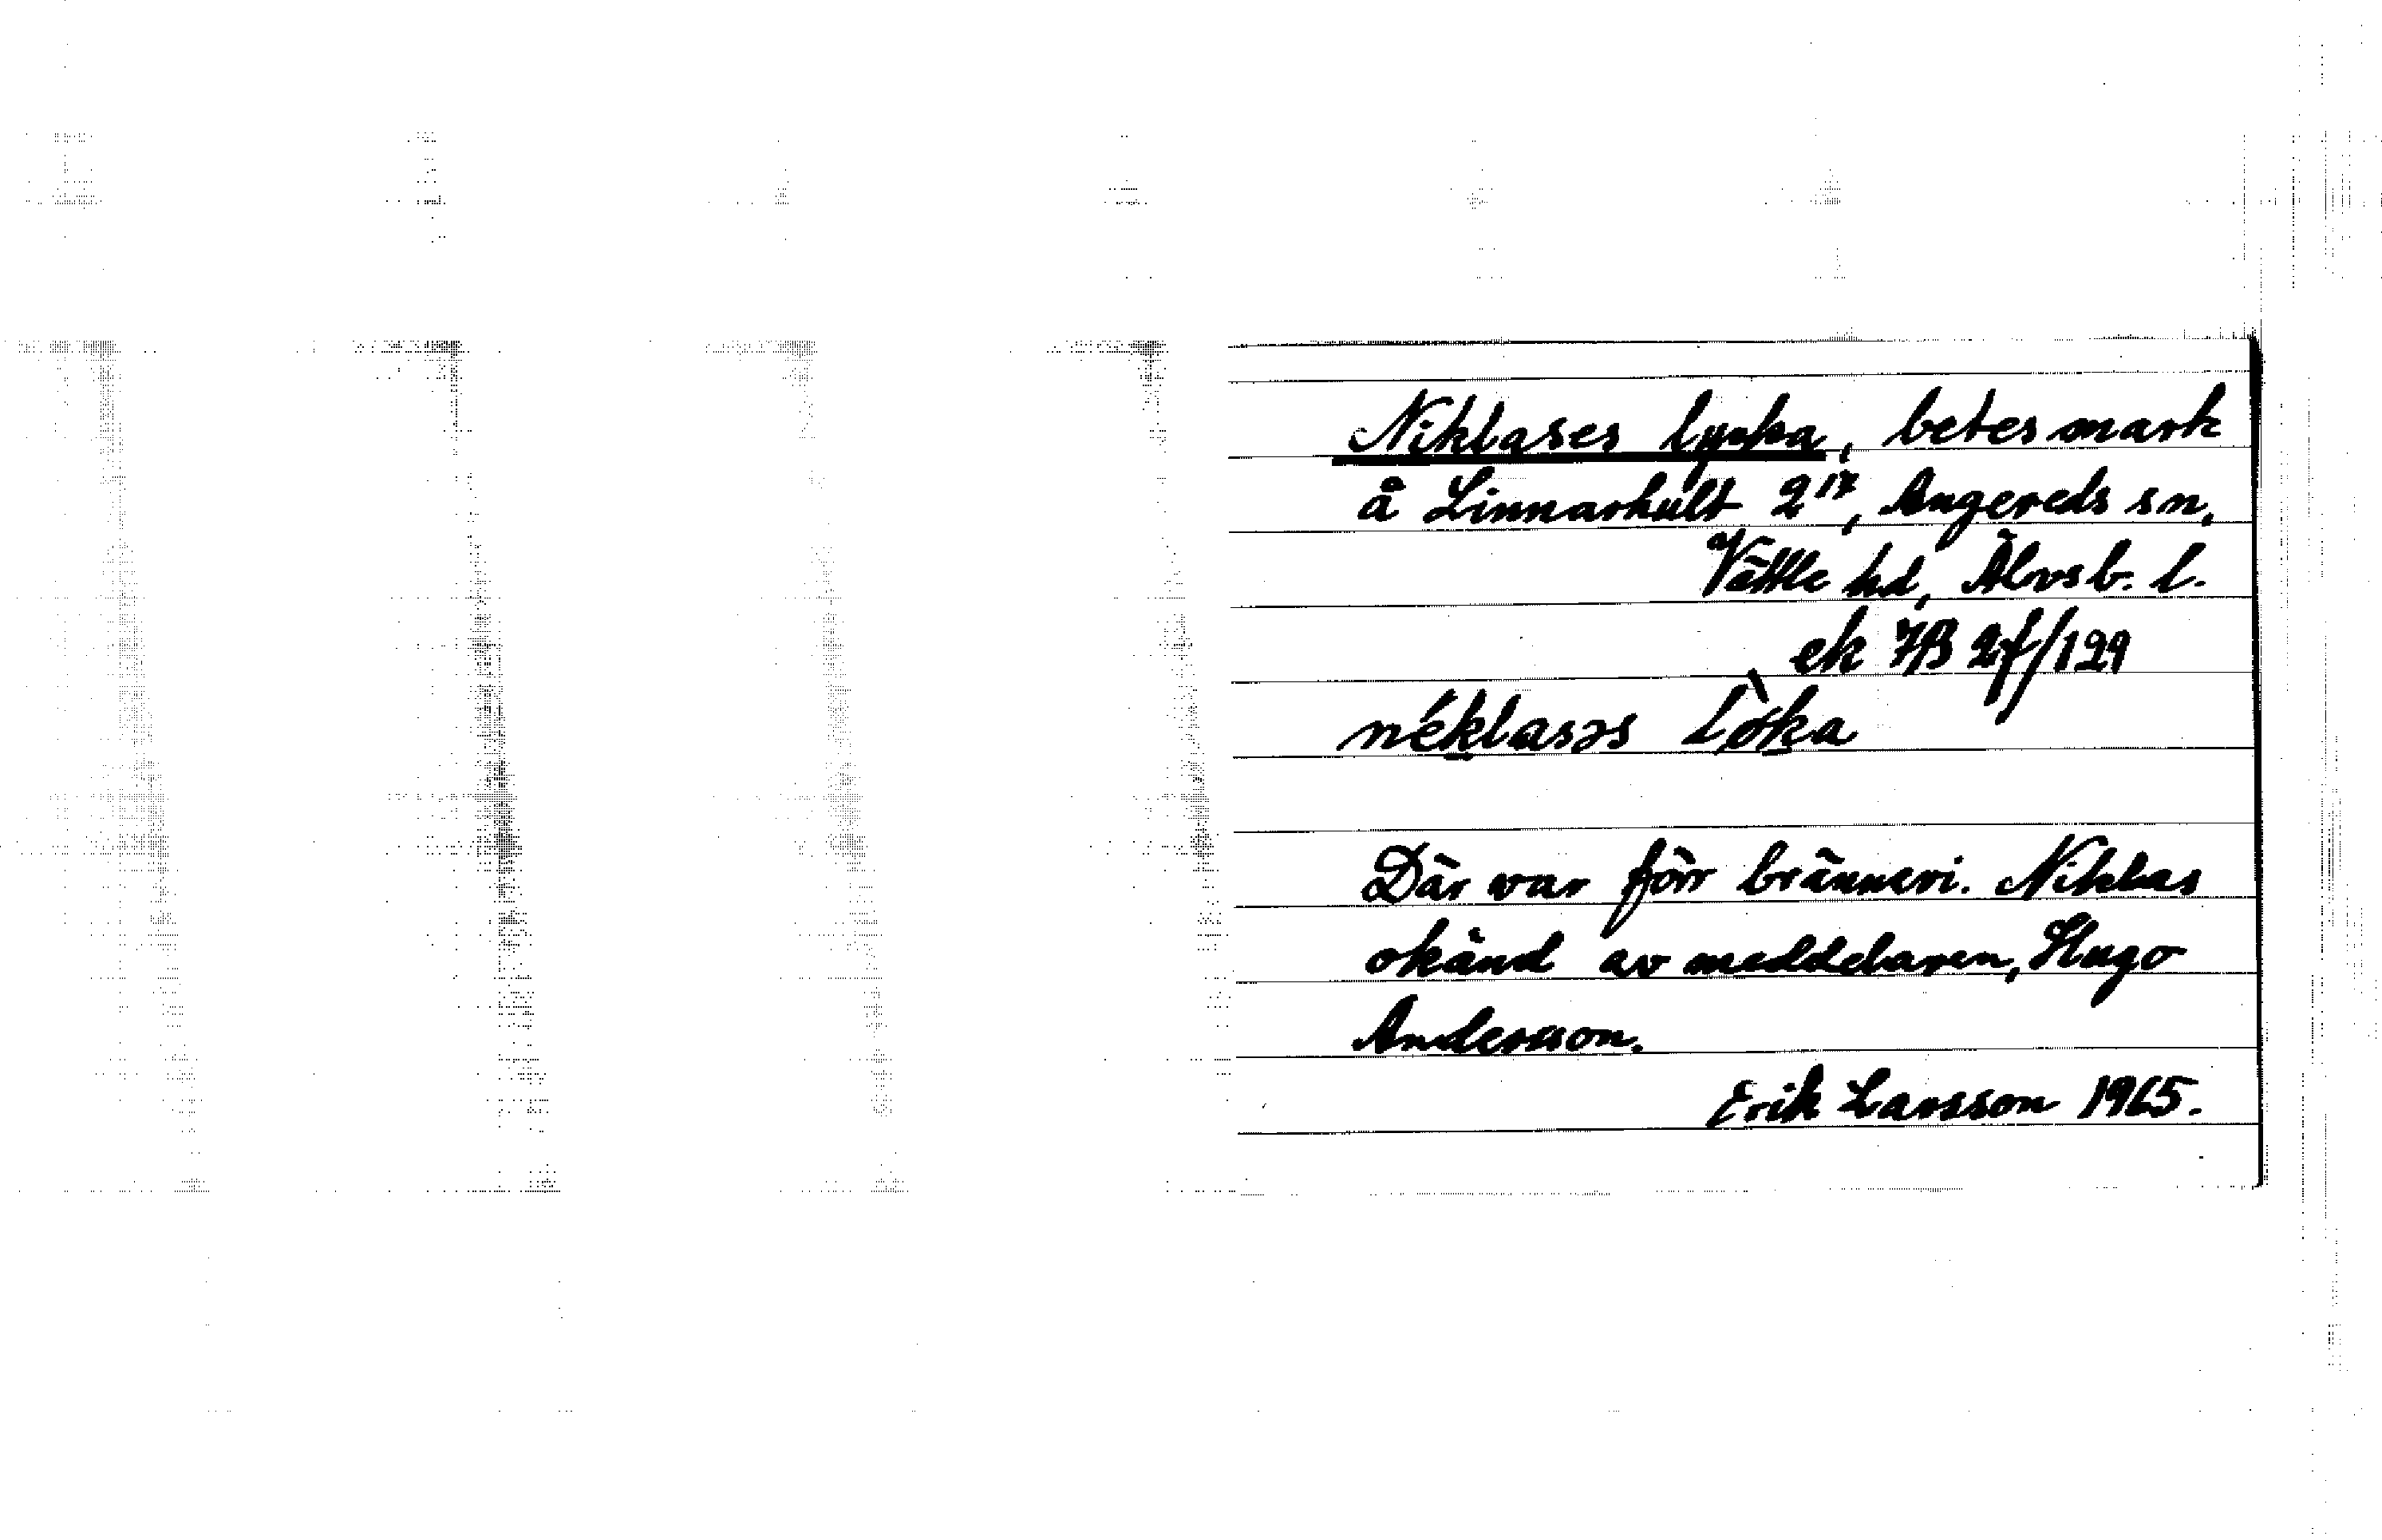 Niklases lycka, betesmark
å Linnarhult 2¹⁷, Angereds sn,
Vättle hd, Älvsb. l.
ek 7B 2f/129
néklasəs lö̀ka
Där var förr bränneri. Niklas
okänd av meddelaren, Hugo
Andersson.
Erik Larsson 1965.